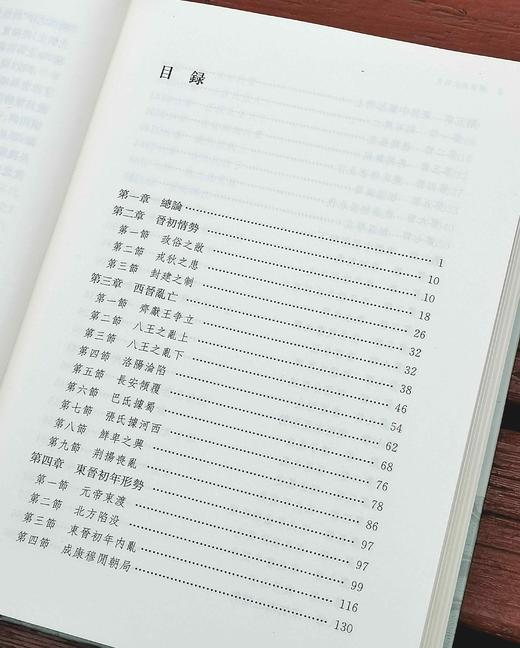 目 録
第一章 總論 1
第二章 晉初情勢 10
第一節 政俗之敝 10
第二節 戎狄之患 18
第三節 封建之制 26
第三章 西晉亂亡 32
第一節 齊獻王争立 32
第二節 八王之亂上 38
第三節 八王之亂下 46
第四節 洛陽淪陷 54
第五節 長安傾覆 62
第六節 巴氐據蜀 68
第七節 張氏據河西 76
第八節 鮮卑之興 78
第九節 荆揚喪亂 86
第四章 東晉初年形勢 97
第一節 元帝東渡 97
第二節 北方陷没 99
第三節 東晉初年内亂 116
第四節 成康穆閒朝局 130